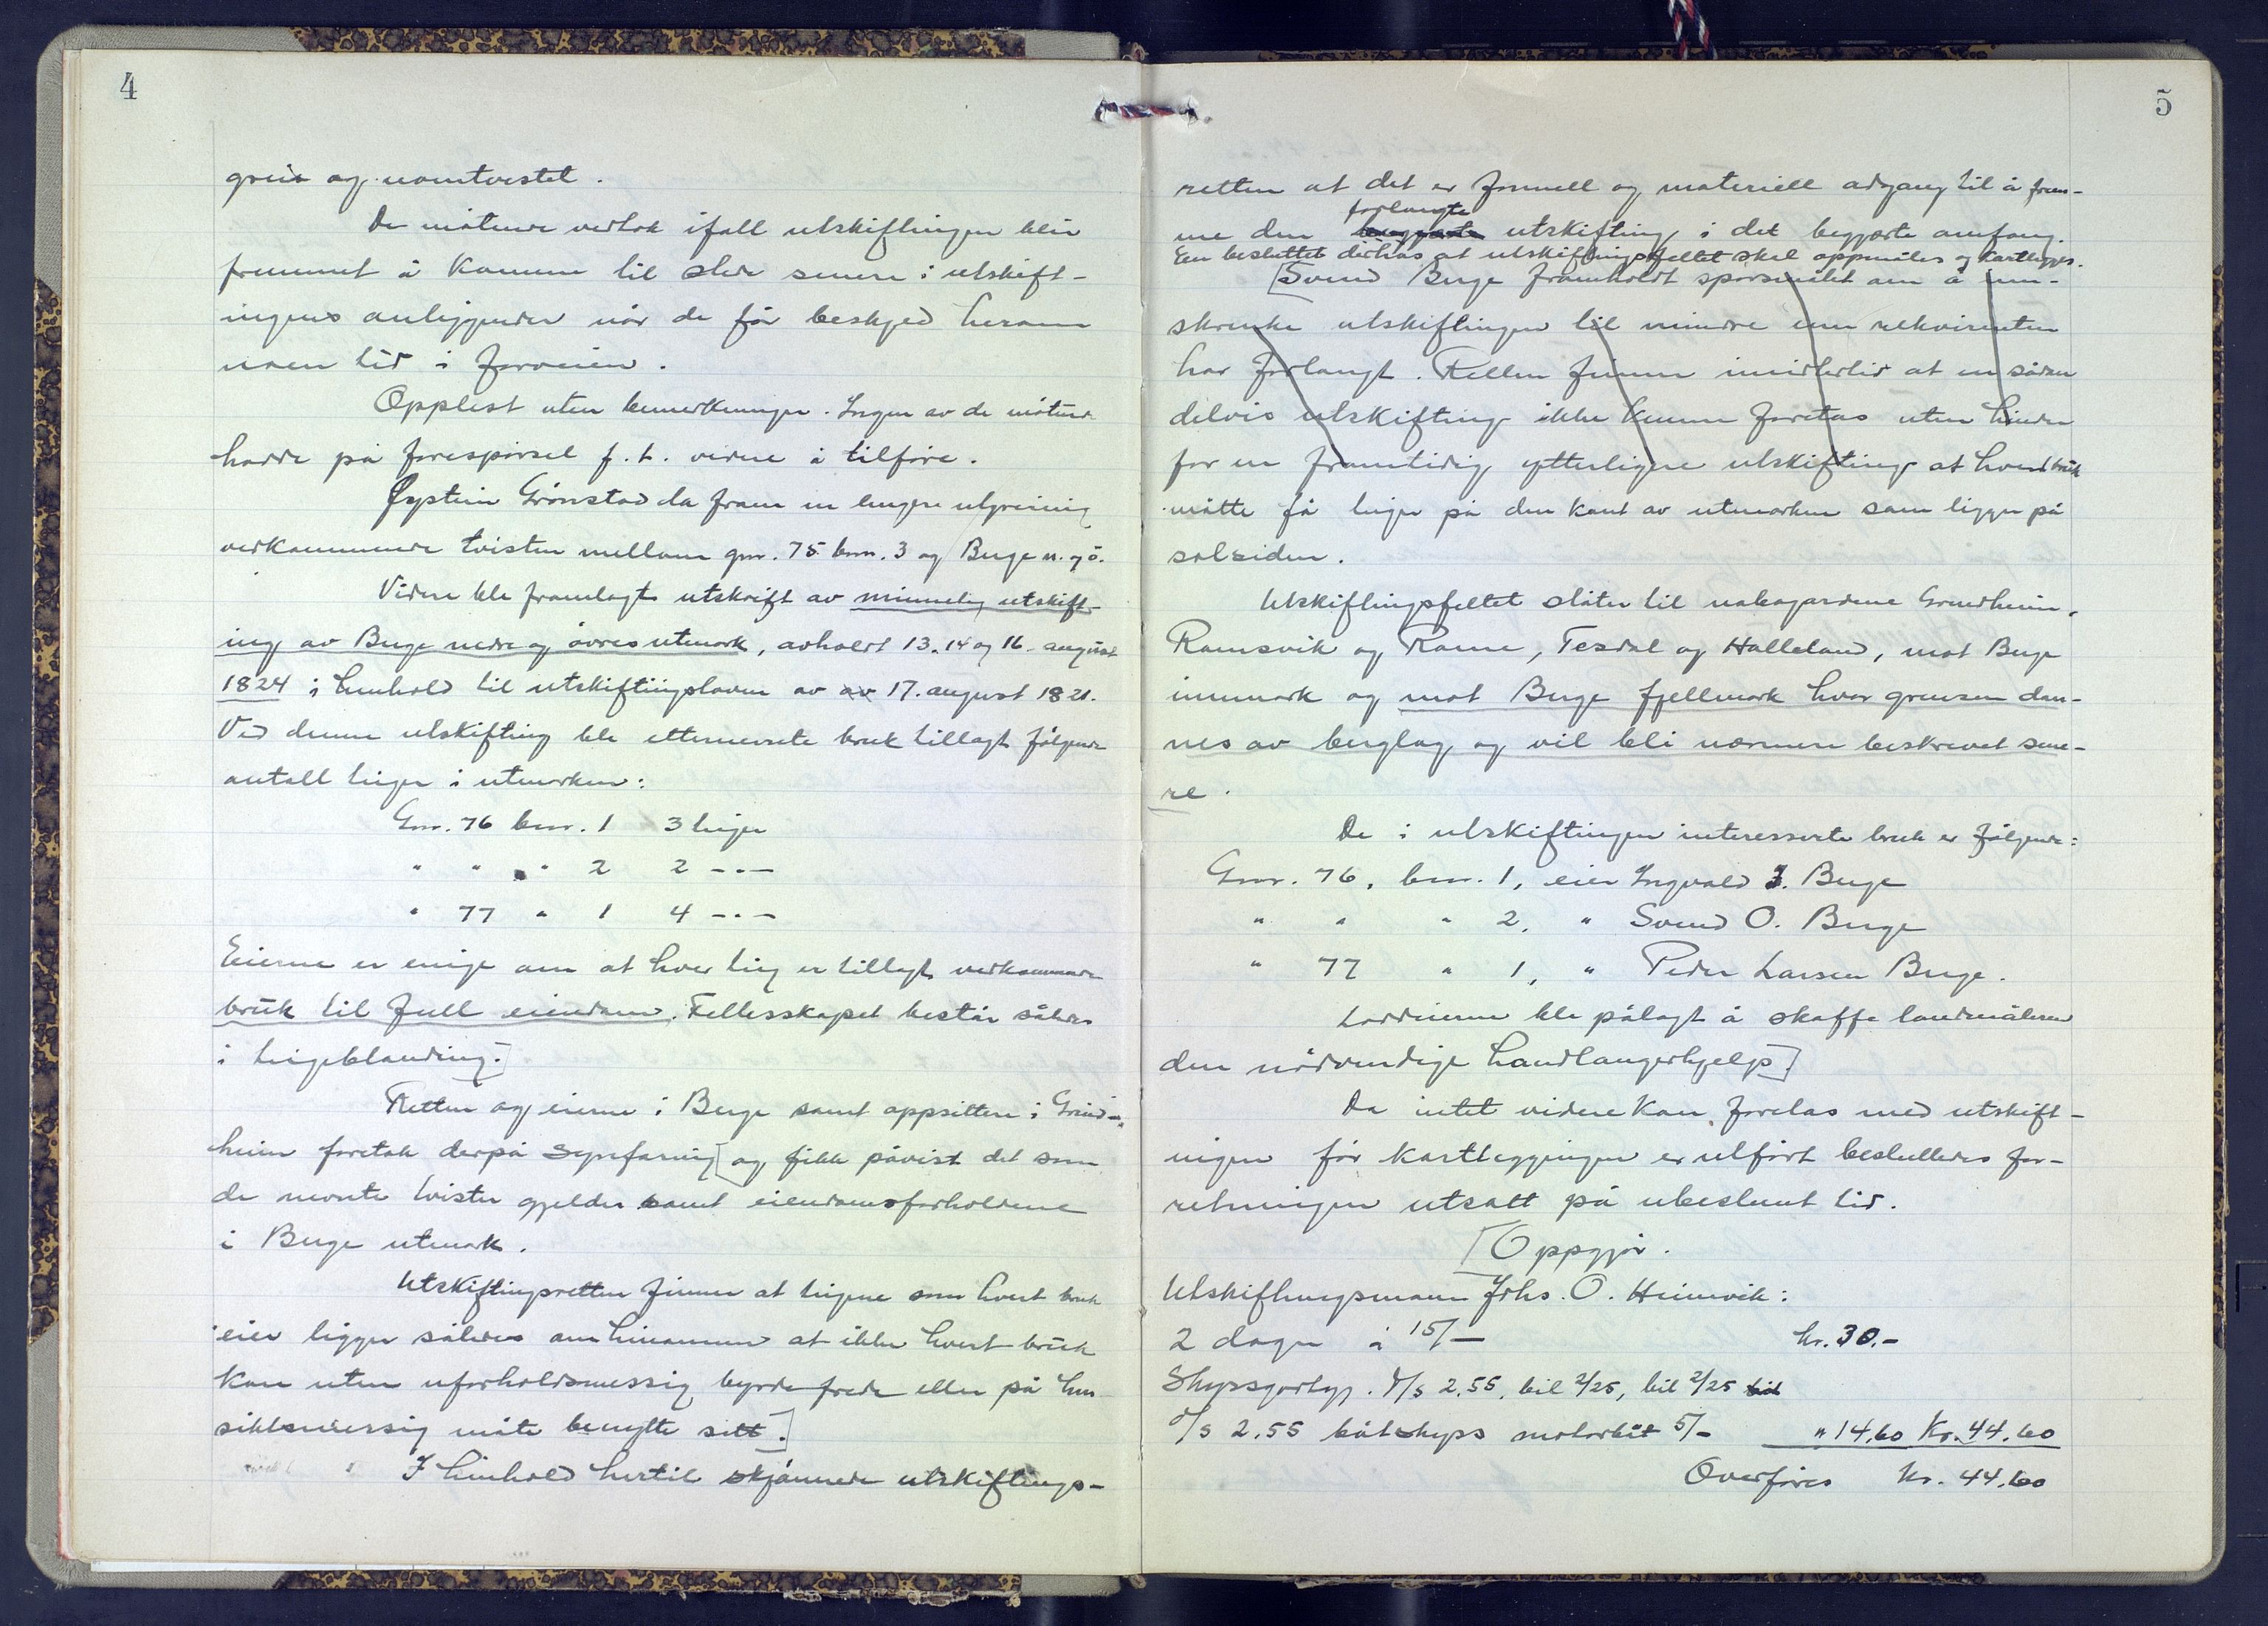 4
greit og uomtvistet.
De møtende vedtok ifall utskiftingen blir
fremmet å komme til stede senere i utskift-
ingens anliggender når de får beskjed herom
noen tid i forveien.
Opplest uten bemerkninger. Ingen av de møtende
hadde på forespørsel f.t. videre å tilføre.
Øystein Grønstad la fram en lengere utgreiing
vedkommende tvisten mellom gnr. 75 bnr. 3 og Berge n. og ö.
Videre ble framlagt utskrift av minnelig utskift-
ing av Berge nedre og øvres utmark, avholdt 13. 14 og 16. august
1824 i henhold til utskiftingsloven av av 17. august 1821.
Ved denne utskifting ble etternevnte bruk tillagt følgende
antall teiger i utmarken:
Gnr. 76 bnr. 1 3 teiger
" " " 2 2 -"-
" 77 " 1 4 -"-
Eierne er enige om at hver teig er tillagt vedkommende
bruk til full eiendom. Fellesskapet består således
i teigeblanding.]
Retten og eierne i Berge samt oppsittere i Grind-
heim foretok derpå synfaring [og fikk påvist det som
de nevnte tvister gjelder samt eiendomsforholdene
i Berge utmark.
Utskiftingsretten finner at teigene som hvert bruk
eier ligger således om hinannen at ikke hvert bruk
kan uten uforholdsmessig byrde frede eller på hen-
siktsmessig måte benytte sitt.]
I henhold hertil skjønnede utskiftings-
5
retten at det er formell og materiell adgang til å frem-
forlangte
me den begjærte utskifting i det begjærte omfang.
Een besluttet derhos at utskiftingsfeltet skal oppmåles og kartlegges.
[Svend Berge framholdt spørsmålet om å inn-
skrenke utskiftingen til mindre enn rekvirenten
har forlangt. Retten finner imidlertid at en sådan
delvis utskifting ikke kunne foretas uten hinder
for en framtidig ytterligere utskifting at hvert bruk
måtte få teiger på den kant av utmarken som ligger på
solsiden.
Utskiftingsfeltet støter til nabogardene Grindheim,
Ramsvik og Rame, Tesdal og Halleland, mot Berge
innmark og mot Berge fjellmark hvor grensen dan-
nes av berglag og vil bli nærmere beskrevet sene-
re.
De i utskiftingen interesserte bruk er følgende:
Gnr. 76, bnr. 1, eier Ingvald J. Berge
" " " 2, " Svend O. Berge
" 77 " 1, " Peder Larsen Berge.
Lodeierne ble pålagt å skaffe landmåleren
den nødvendige handlangerhjelp.]
Da intet videre kan foretas med utskift-
ingen før kartleggingen er utført besluttedes for-
retningen utsatt på ubestemt tid.
[Oppgjør.
Utskiftningsmann Johs. O. Heimvik:
2 dager à 15/- kr. 30.-
Skyssgodtgj. D/S 2.55, bil 2/25, bil 2/25 bil
D/S 2.55 båtskyss motorbåt 5/- " 14,60 Kr. 44.60
Overføres kr. 44.60